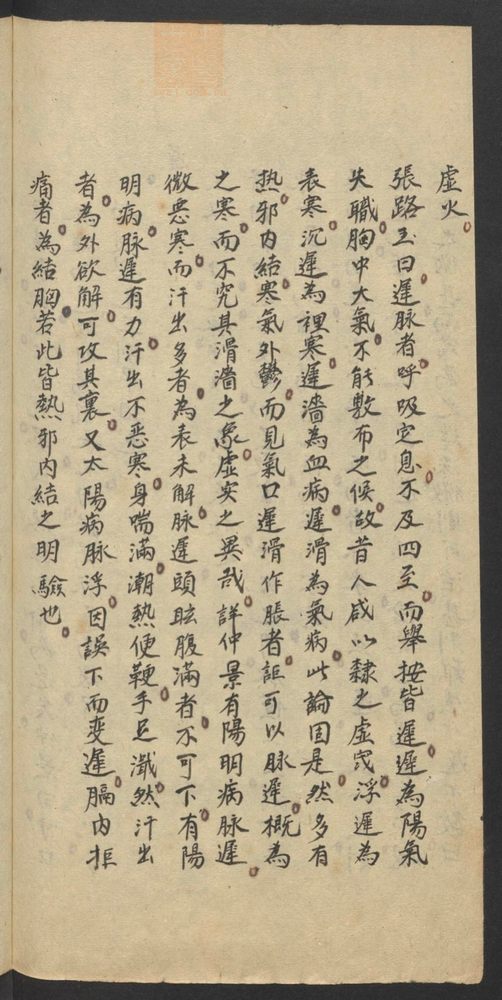 虛火
張路玉曰遲脉者呼吸定息不及四至而舉按皆遲遲為陽氣
失職胸中大氣不能敷布之候故昔人咸以隸之虛寒浮遲為
表寒沉遲為裡寒遲濇為血病遲滑為氣病此論固是然多有
热邪内結寒氣外鬱而見氣口遲滑作脹者詎可以脉遲概為
之寒而不究其滑濇之象虛实之異哉詳仲景有陽明病脉遲
微惡寒而汗出多者為表未解脉遲頭眩腹滿者不可下有陽
明病脉遲有力汗出不恶寒身喘滿潮热便鞕手足濈然汗出
者為外欲解可攻其裏又太陽病脉浮因誤下而变遲膈内拒
痛者為結胸若此皆熱邪内結之明驗也